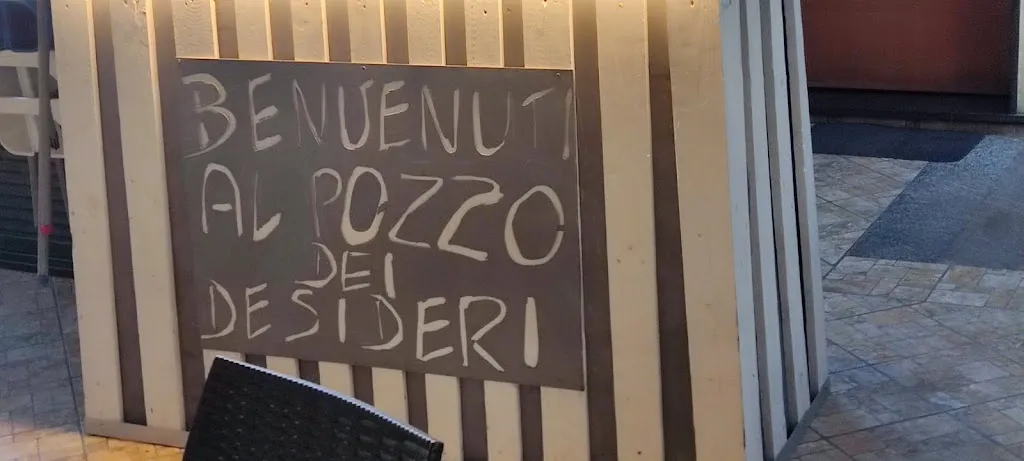 BENVENUTI
AL POZZO
DEI
DESIDERI